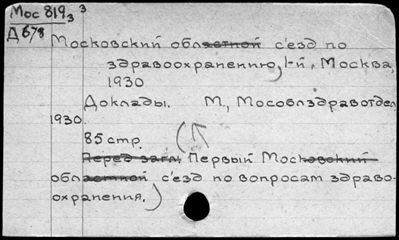 Мос 819₃ 3
Д 678
Московский областной с'езд по
здравоохранению, 1-й, Москва,
1930
Доклады. М., Мособлздравотдел
1930.
85 стр.
(Перед загл. Первый Московский
областной с'езд по вопросам здраво-
охранения.)